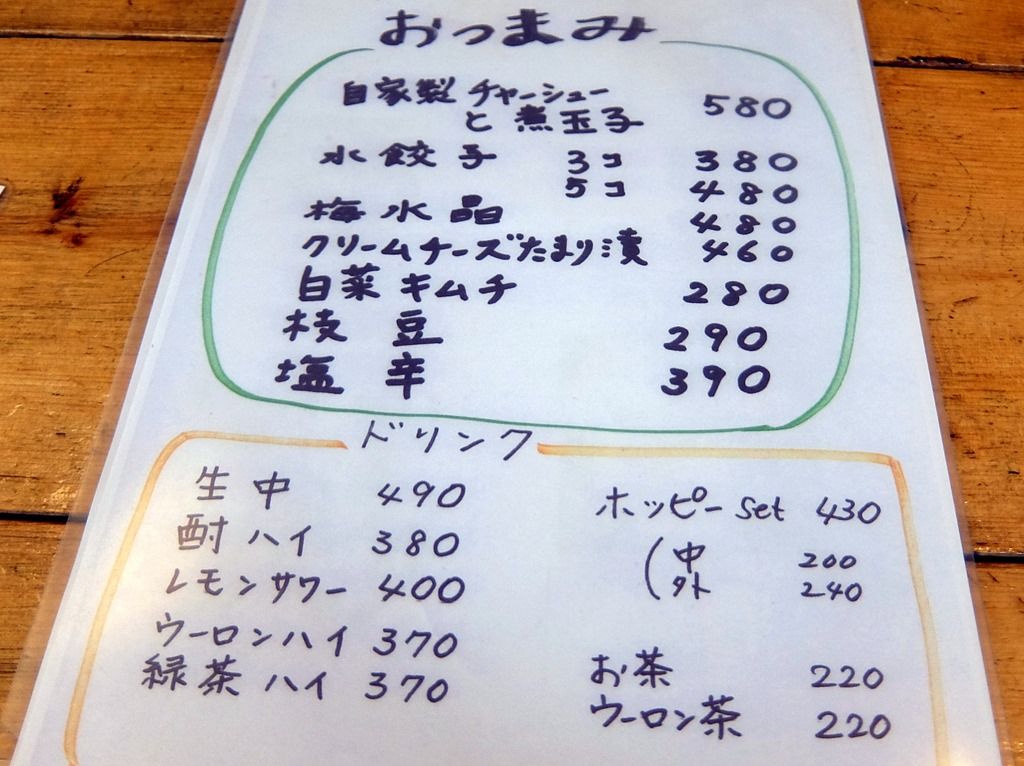 おつまみ
自家製 チャーシュー
と 煮玉子 580
水餃子 3コ 380
5コ 480
梅水晶 480
クリームチーズたまり漬 460
白菜キムチ 280
枝豆 290
塩辛 390
ドリンク
生中 490
酎ハイ 380
レモンサワー 400
ウーロンハイ 370
緑茶ハイ 370
ホッピーset 430
(中 200
外 240
お茶 220
ウーロン茶 220